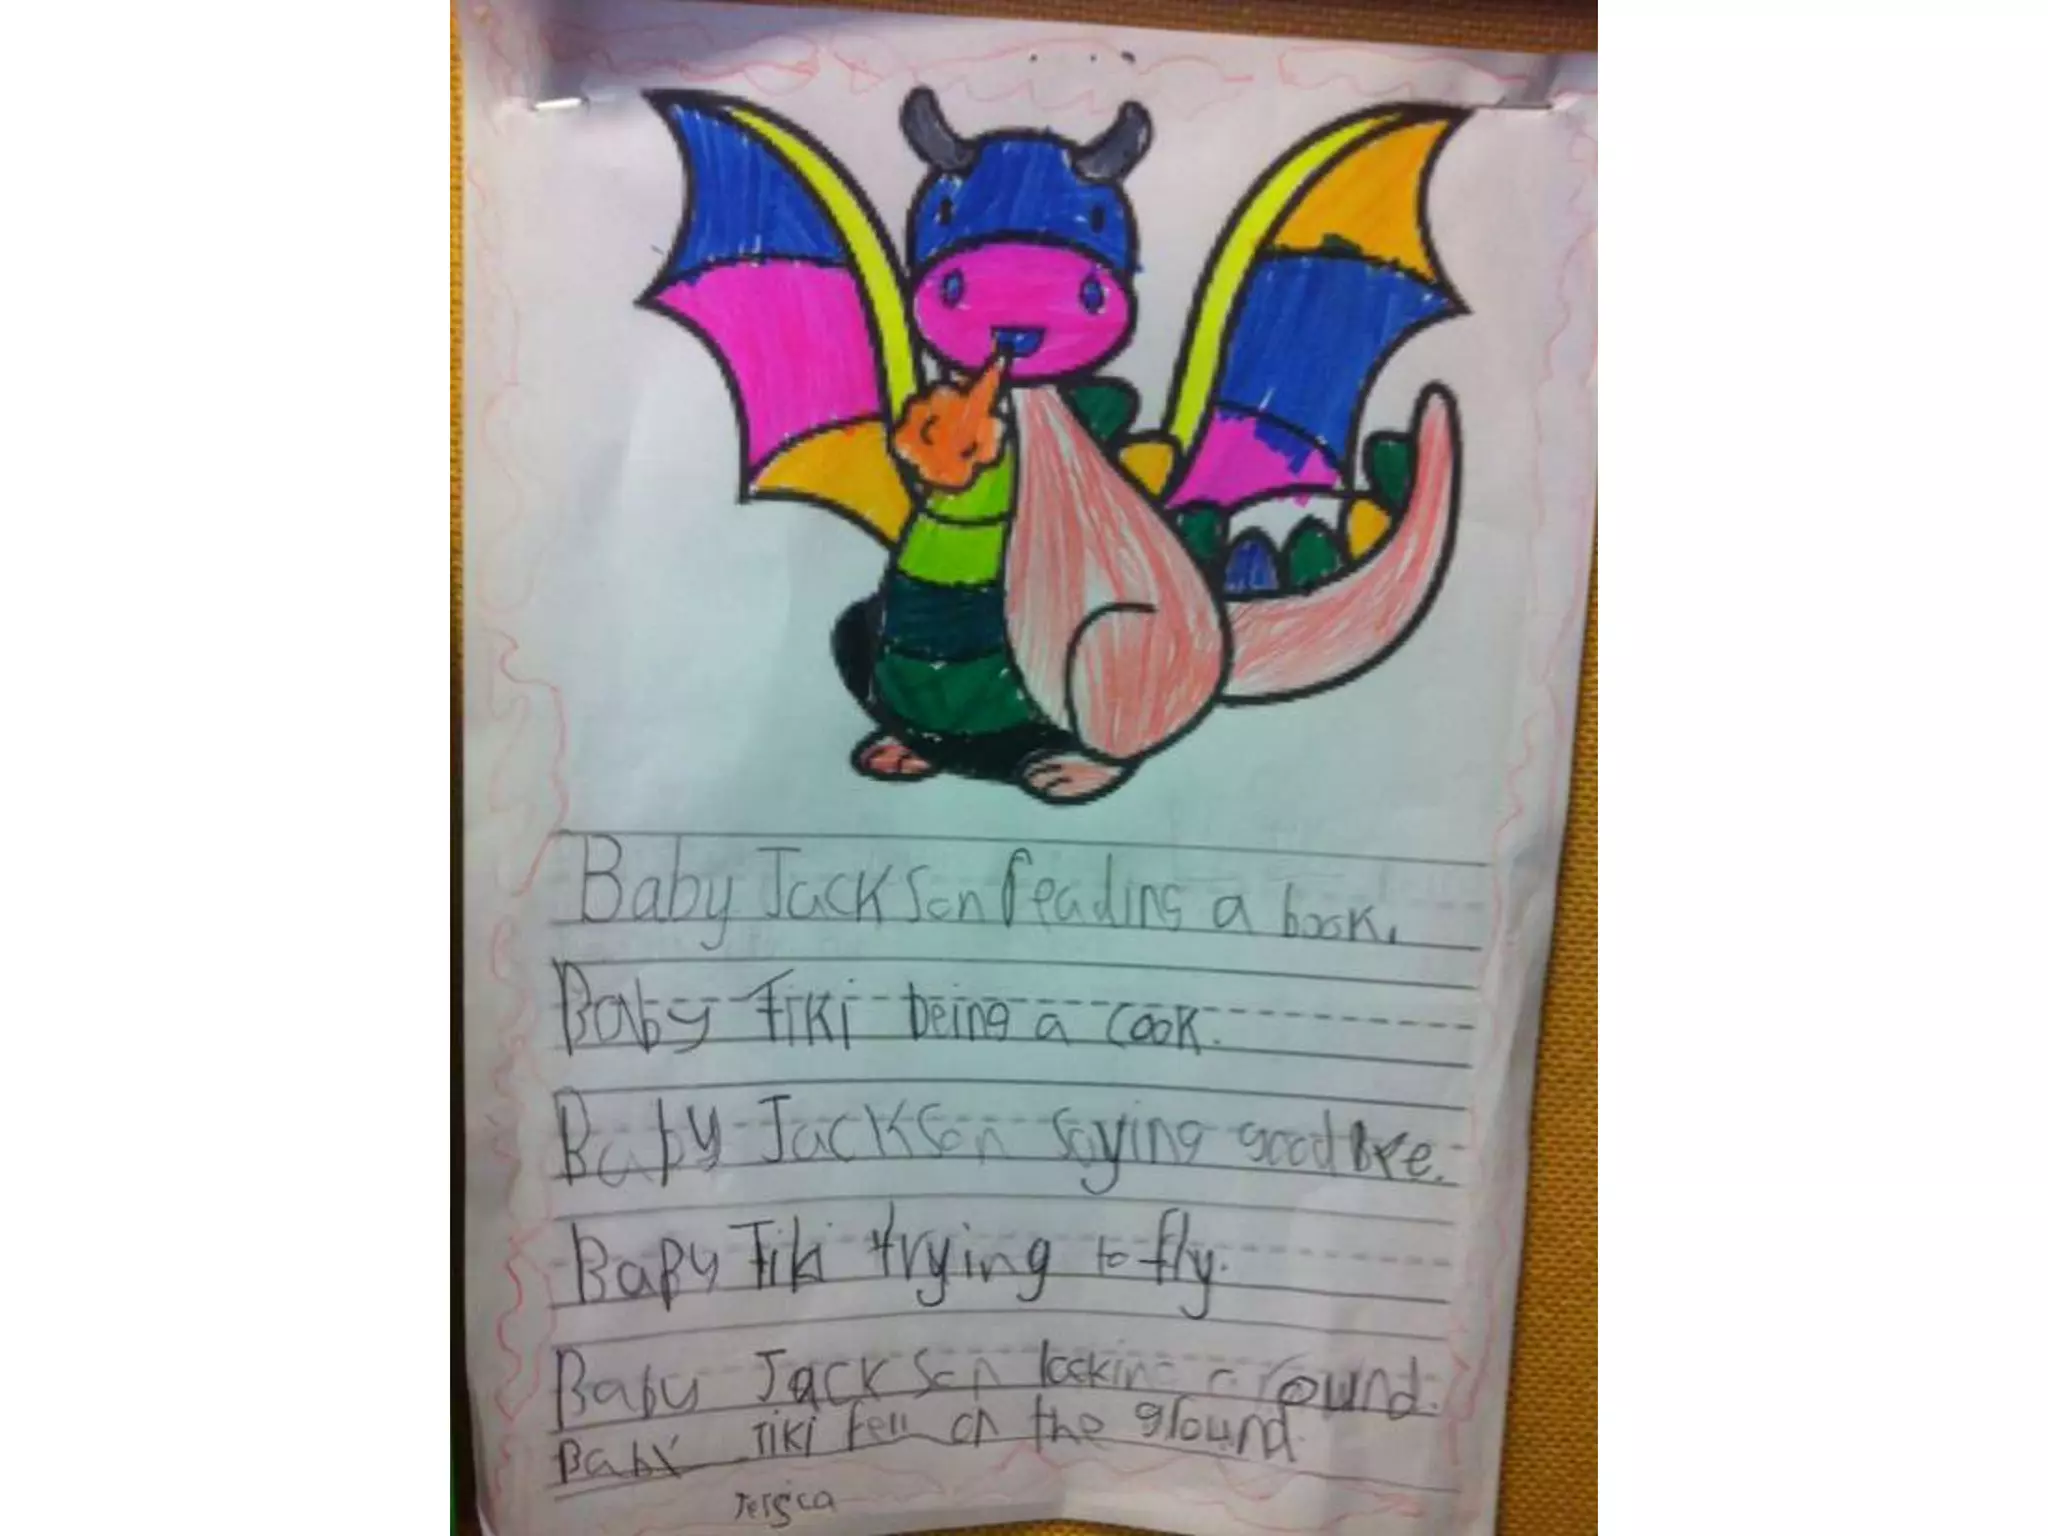 Baby Jackson reading a book.
Baby Tiki being a cook.
Baby Jackson saying good bye.
Baby Tiki trying to fly.
Baby Jackson looking around.
Baby Tiki fell on the ground.
Jessica